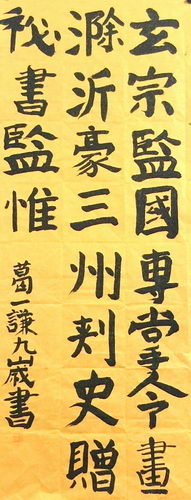 玄宗監國專掌令畫
滁沂豪三州刾史贈
祕書監惟
葛一謙九歲書